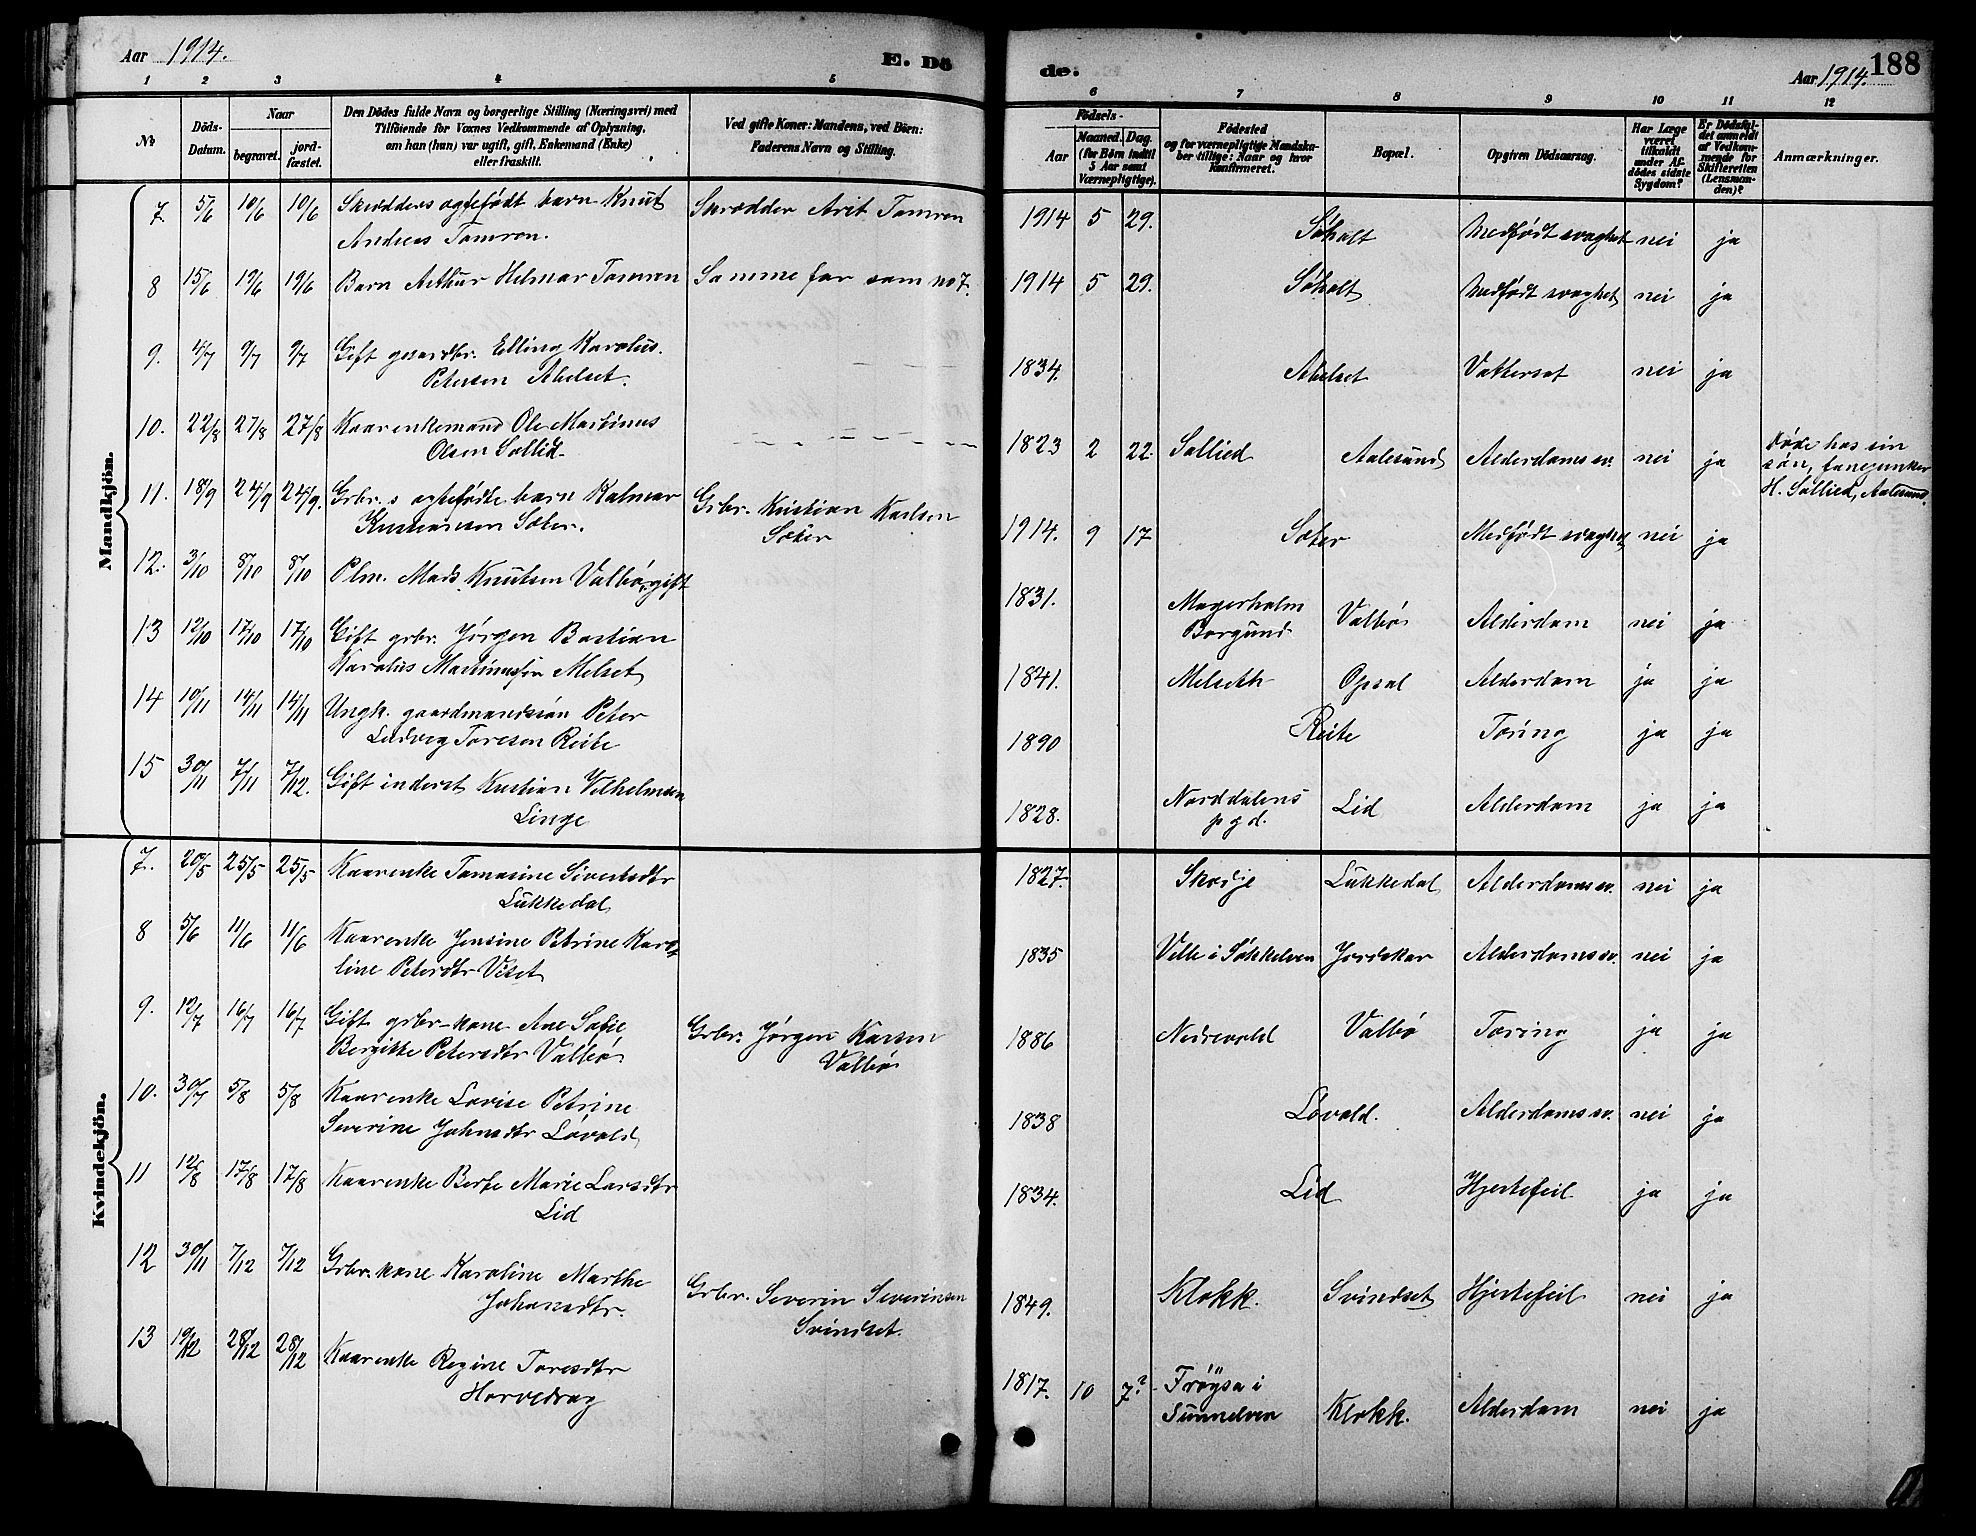 Aar 1914.
E. Dö
de.
188
Aar 1914.
1 2 3 4 5 6 7 8 9 10 11 12
No
Döds-
Datum.
Naar
begravet.
jord-
fæstet.
Den Dödes fulde Navn og borgerlige Stilling (Næringsvei) med
Tilföiende for Voxnes Vedkommende af Oplysning,
om han (hun) var ugift, gift, Enkemand (Enke)
eller fraskilt.
Ved gifte Koner: Mandens, ved Börn:
Faderens Navn og Stilling.
Födsels-
Aar
Maaned.
Dag.
(for Börn indtil
5 Aar samt
Værnepligtige).
Födested
og for værnepligtige Mandska-
ber tillige: Naar og hvor
Konfirmeret.
Bopæl.
Opgiven Dödsaarsag.
Har Læge
været
tilkaldt
under Af-
dödes sidste
Sygdom?
Er Dödsfal-
det anmeldt
af Vedkom-
mende for
Skifteretten
(Lensman-
den)?
Anmærkninger.
Mandkjön.
7. 5/6 10/6 10/6 Skrædders egtefødt barn Knut Skrædder Arit Tomren 1914 5 29. Søholt Medfødt svaghet nei ja
Andreas Tomren.
8 15/6 19/6 19/6 Barn Arthur Helmar Tomren Samme far som no 7. 1914 5 29. Søholt Medfødt svaghet nei ja
9. 4/7 9/7 9/7 Gift gaardbr. Elling Karolus. 1834. Abelset Vattersot nei ja
Petersen Abelset.
10. 22/8 27/8 27/8 Kaarenkemand Ole Martinus 1823 2 22. Sollied Aalesund Alderdomssv. nei ja Døde hos sin
Olsen Sollid søn,
H. Sollied, Aalesund.
11. 18/9 24/9 24/9. Grbr.s egtefødte barn Kalmar Grbr. Kristian Karlsen 1914. 9 17 Sæter Medfødt svaghet nei ja
Kristiansen Sæter. Sæter
12. 3/10 8/10 8/10 Plm. Mads Knutsen Valbø, gift 1831. Magerholm Valbø Alderdom nei ja
Borgund
13 12/10 17/10 17/10 Gift grbr. Jørgen Bastian 1841. Melseth Opsal Alderdom ja ja
Karolus Martinussøn Melset
14 10/11 14/11 14/11 Ungk. gaardmandssøn Peter 1890 Reite Tæring ja ja
Ludvig Toresen Reite
15 30/11 7/11 7/12. Gift inderst Kristian Vilhelmsen 1828. Norddalens Lid Alderdom ja ja
Linge pgd.
Kvindekjön.
7. 20/5 25/5 25/5 Kaarenke Tomasine Sivertsdtr 1827. Skodje Lukkedal Alderdomssv. nei ja
Lukkedal
8 5/6 11/6 11/6 Kaarenke Jensine Petrine Karo- 1835 Velle i Søkkelven Jordskar Alderdomssv. nei ja
line Petersdtr Viset
9. 12/7 16/7 16/7 Gift grbr-kone Ane Sofie Grbr. Jørgen Karsen 1886 Nedrevold Valbø Tæring ja ja
Bergitte Petersdtr Valbø Valbø
10. 30/7 5/8 5/8 Kaarenke Lovise Petrine 1838 Løvold. Alderdomssv. nei ja
Severine Johnsdtr Løvold
11 12/8 17/8 17/8 Kaarenke Berte Marie Larsdtr 1834. Lid Hjertefeil ja ja
Lid
12 30/11 7/12 7/12 Grbr.kone Karoline Marthe Grbr. Severin Severinsen 1849. Klokk. Svindset Hjertefeil nei ja
Johansdtr. Svindset.
13 19/12 28/12 28/12 Kaarenke Regine Toresdtr 1817. 10 7? Frøysa i Klokk. Alderdom nei ja
Horvedrag Sunnelven